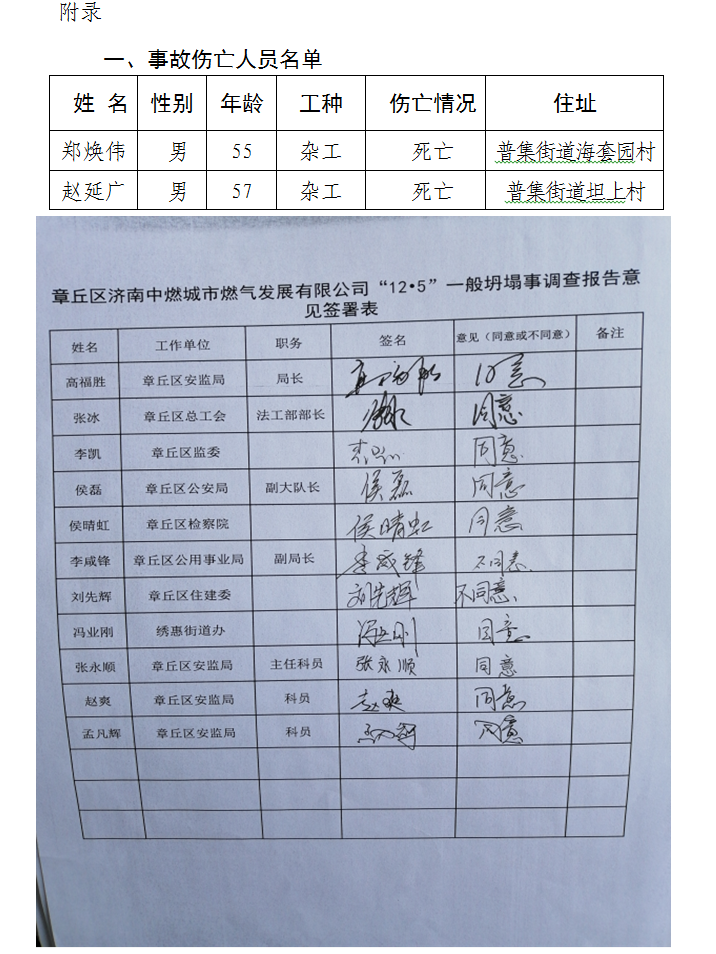 附录
一、事故伤亡人员名单
姓 名 性别 年龄 工种 伤亡情况 住址
郑焕伟 男 55 杂工 死亡 普集街道海套园村
赵延广 男 57 杂工 死亡 普集街道坦上村
章丘区济南中燃城市燃气发展有限公司“12•5”一般坍塌事调查报告意
见签署表
姓名 工作单位 职务 签名 意见（同意或不同意） 备注
高福胜 章丘区安监局 局长 同意
张冰 章丘区总工会 法工部部长 同意
李凯 章丘区监委 同意
侯磊 章丘区公安局 副大队长 侯磊 同意
侯晴虹 章丘区检察院 侯晴虹 同意
李咸锋 章丘区公用事业局 副局长 李咸锋 不同意
刘先辉 章丘区住建委 刘先辉 不同意
冯业刚 绣惠街道办 冯业刚 同意
张永顺 章丘区安监局 主任科员 张永顺 同意
赵爽 章丘区安监局 科员 赵爽 同意
孟凡辉 章丘区安监局 科员 同意